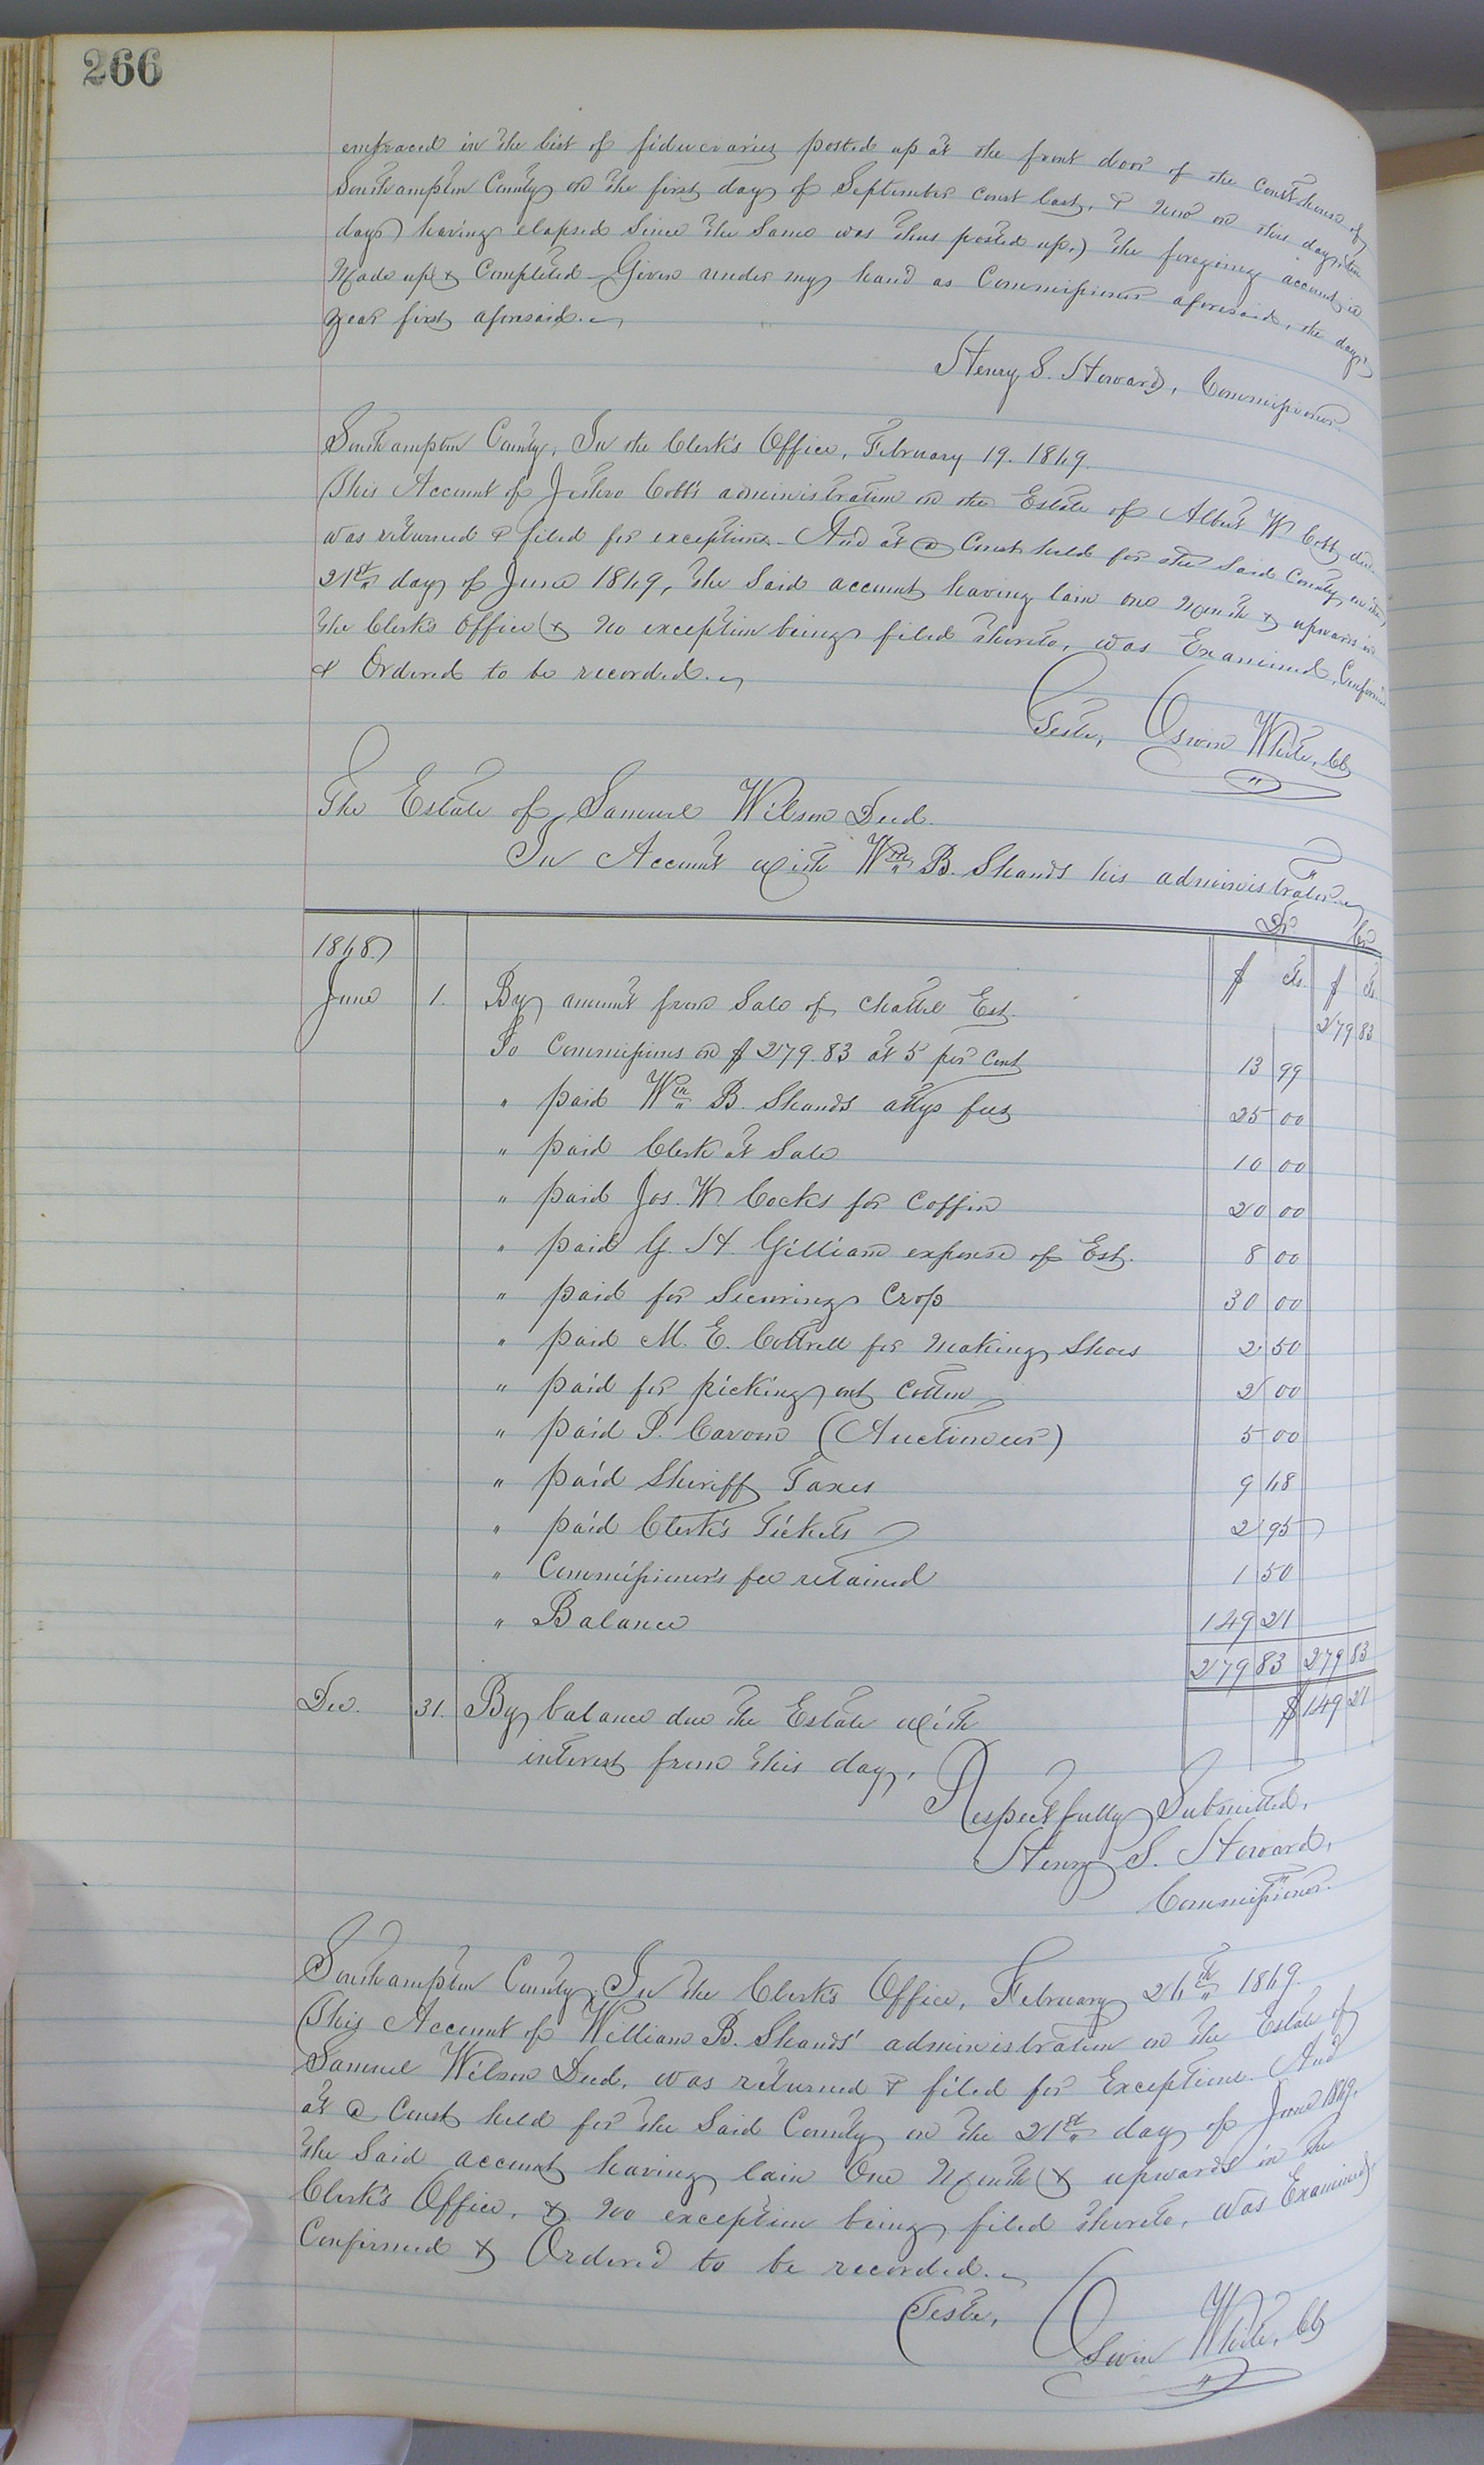 266
embraced in the list of fiduciaries posted up at the front door of the Courthouse of
Southampton County on the first day of September Court last, & now on this day, (ten
days) having elapsed since the same was thus posted up,) the foregoing account is
Made up & Completed – Given under my hand as Commissioner aforesaid, the day &
year first aforesaid.
Henry S. Howard, Commissioner
Southampton County, In the Clerk's Office, February 19. 1869.
This Account of Cobb's administration on the Estate of Albert W Cobb, decd
was returned & filed for exceptions – And at a Court held for the said County on the
21st day of June 1869, the said account having lain one Month & upwards in
the Clerk's Office & no exception being filed thereto, was Examined, Confirmed
& Ordered to be recorded.
Teste, White, Clk
The Estate of Samuel Wilson Decd.
In Account with Wm B. Shands his administrator
Dr Cr
1868 $ cts. $ cts
June 1. By amount from Sale of Chattel Est. 279 83
To Commissions on $279.83 at 5 per Cent 13 99
" paid Wm B. Shands attys fees 25 00
" paid Clerk at Sale 10 00
" paid Jos. W. Cocks for Coffin 20 00
" paid G. H. Gilliam expense of Est. 8 00
" paid for Securing Crop 30 00
" paid M. E. Cottrell for Making Shoes 2 50
" paid for picking out Cotton 2 00
" paid P. (Auctioneer) 5 00
" paid Sheriff Taxes 9 68
" paid Clerk's Tickets 2 95
" Commissioner's fee retained 1 50
" Balance 149 21
279 83 279 83
Dec. 31. By balance due the Estate with $149 21
interest from this day.
Respectfully Submitted,
Henry S. Howard,
Commissioner.
Southampton County, In the Clerk's Office, February 26th 1869.
This Account of William B. Shands' administration on the Estate of
Samuel Wilson Decd. was returned & filed for Exceptions. And
at a Court held for the Said County on the 21st day of June 1869.
the Said account having lain One Month & upwards in the
Clerk's Office, & no exception being filed thereto, was Examined,
Confirmed & Ordered to be recorded.
Teste, White, Clk